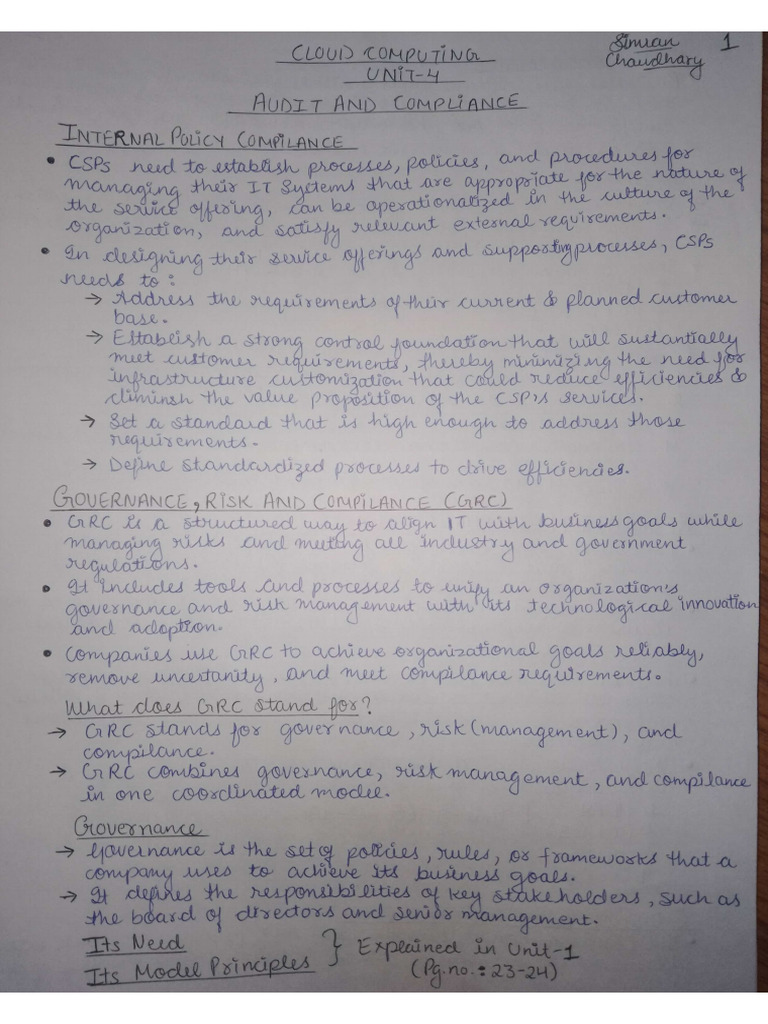 CLOUD COMPUTING
Simran 1
Chaudhary
UNIT-4
AUDIT AND COMPLIANCE
INTERNAL POLICY COMPILANCE
• CSPs need to establish processes, policies, and procedures for
managing their IT Systems that are appropriate for the nature of
the service offering, can be operationalized in the culture of the
organization, and satisfy relevant external requirements.
• In designing their service offerings and supporting processes, CSPs
needs to:
→ Address the requirements of their current & planned customer
base.
→ Establish a strong control foundation that will sustantially
meet customer requirements, thereby minimizing the need for
infrastructure customization that could reduce efficiencies &
diminsh the value proposition of the CSP's services.
→ Set a standard that is high enough to address those
requirements.
→ Define standardized processes to drive efficiencies.
GOVERNANCE, RISK AND COMPILANCE (GRC)
• GRC is a structured way to align IT with business goals while
managing risks and meeting all industry and government
regulations.
• It includes tools and processes to unify an organization's
governance and risk management with its technological innovation
and adoption.
• Companies use GRC to achieve organizational goals reliably,
remove uncertanity, and meet compilance requirements.
What does GRC stand for?
→ GRC stands for governance, risk (management), and
compilance.
→ GRC combines governance, risk management, and compilance
in one coordinated model.
Governance
→ Governance is the set of policies, rules, or frameworks that a
company uses to achieve its business goals.
→ It defines the responsibilities of key stakeholders, such as
the board of directors and senior management.
Its Need
Its Model Principles } Explained in Unit-1
(Pg.no.: 23-24)